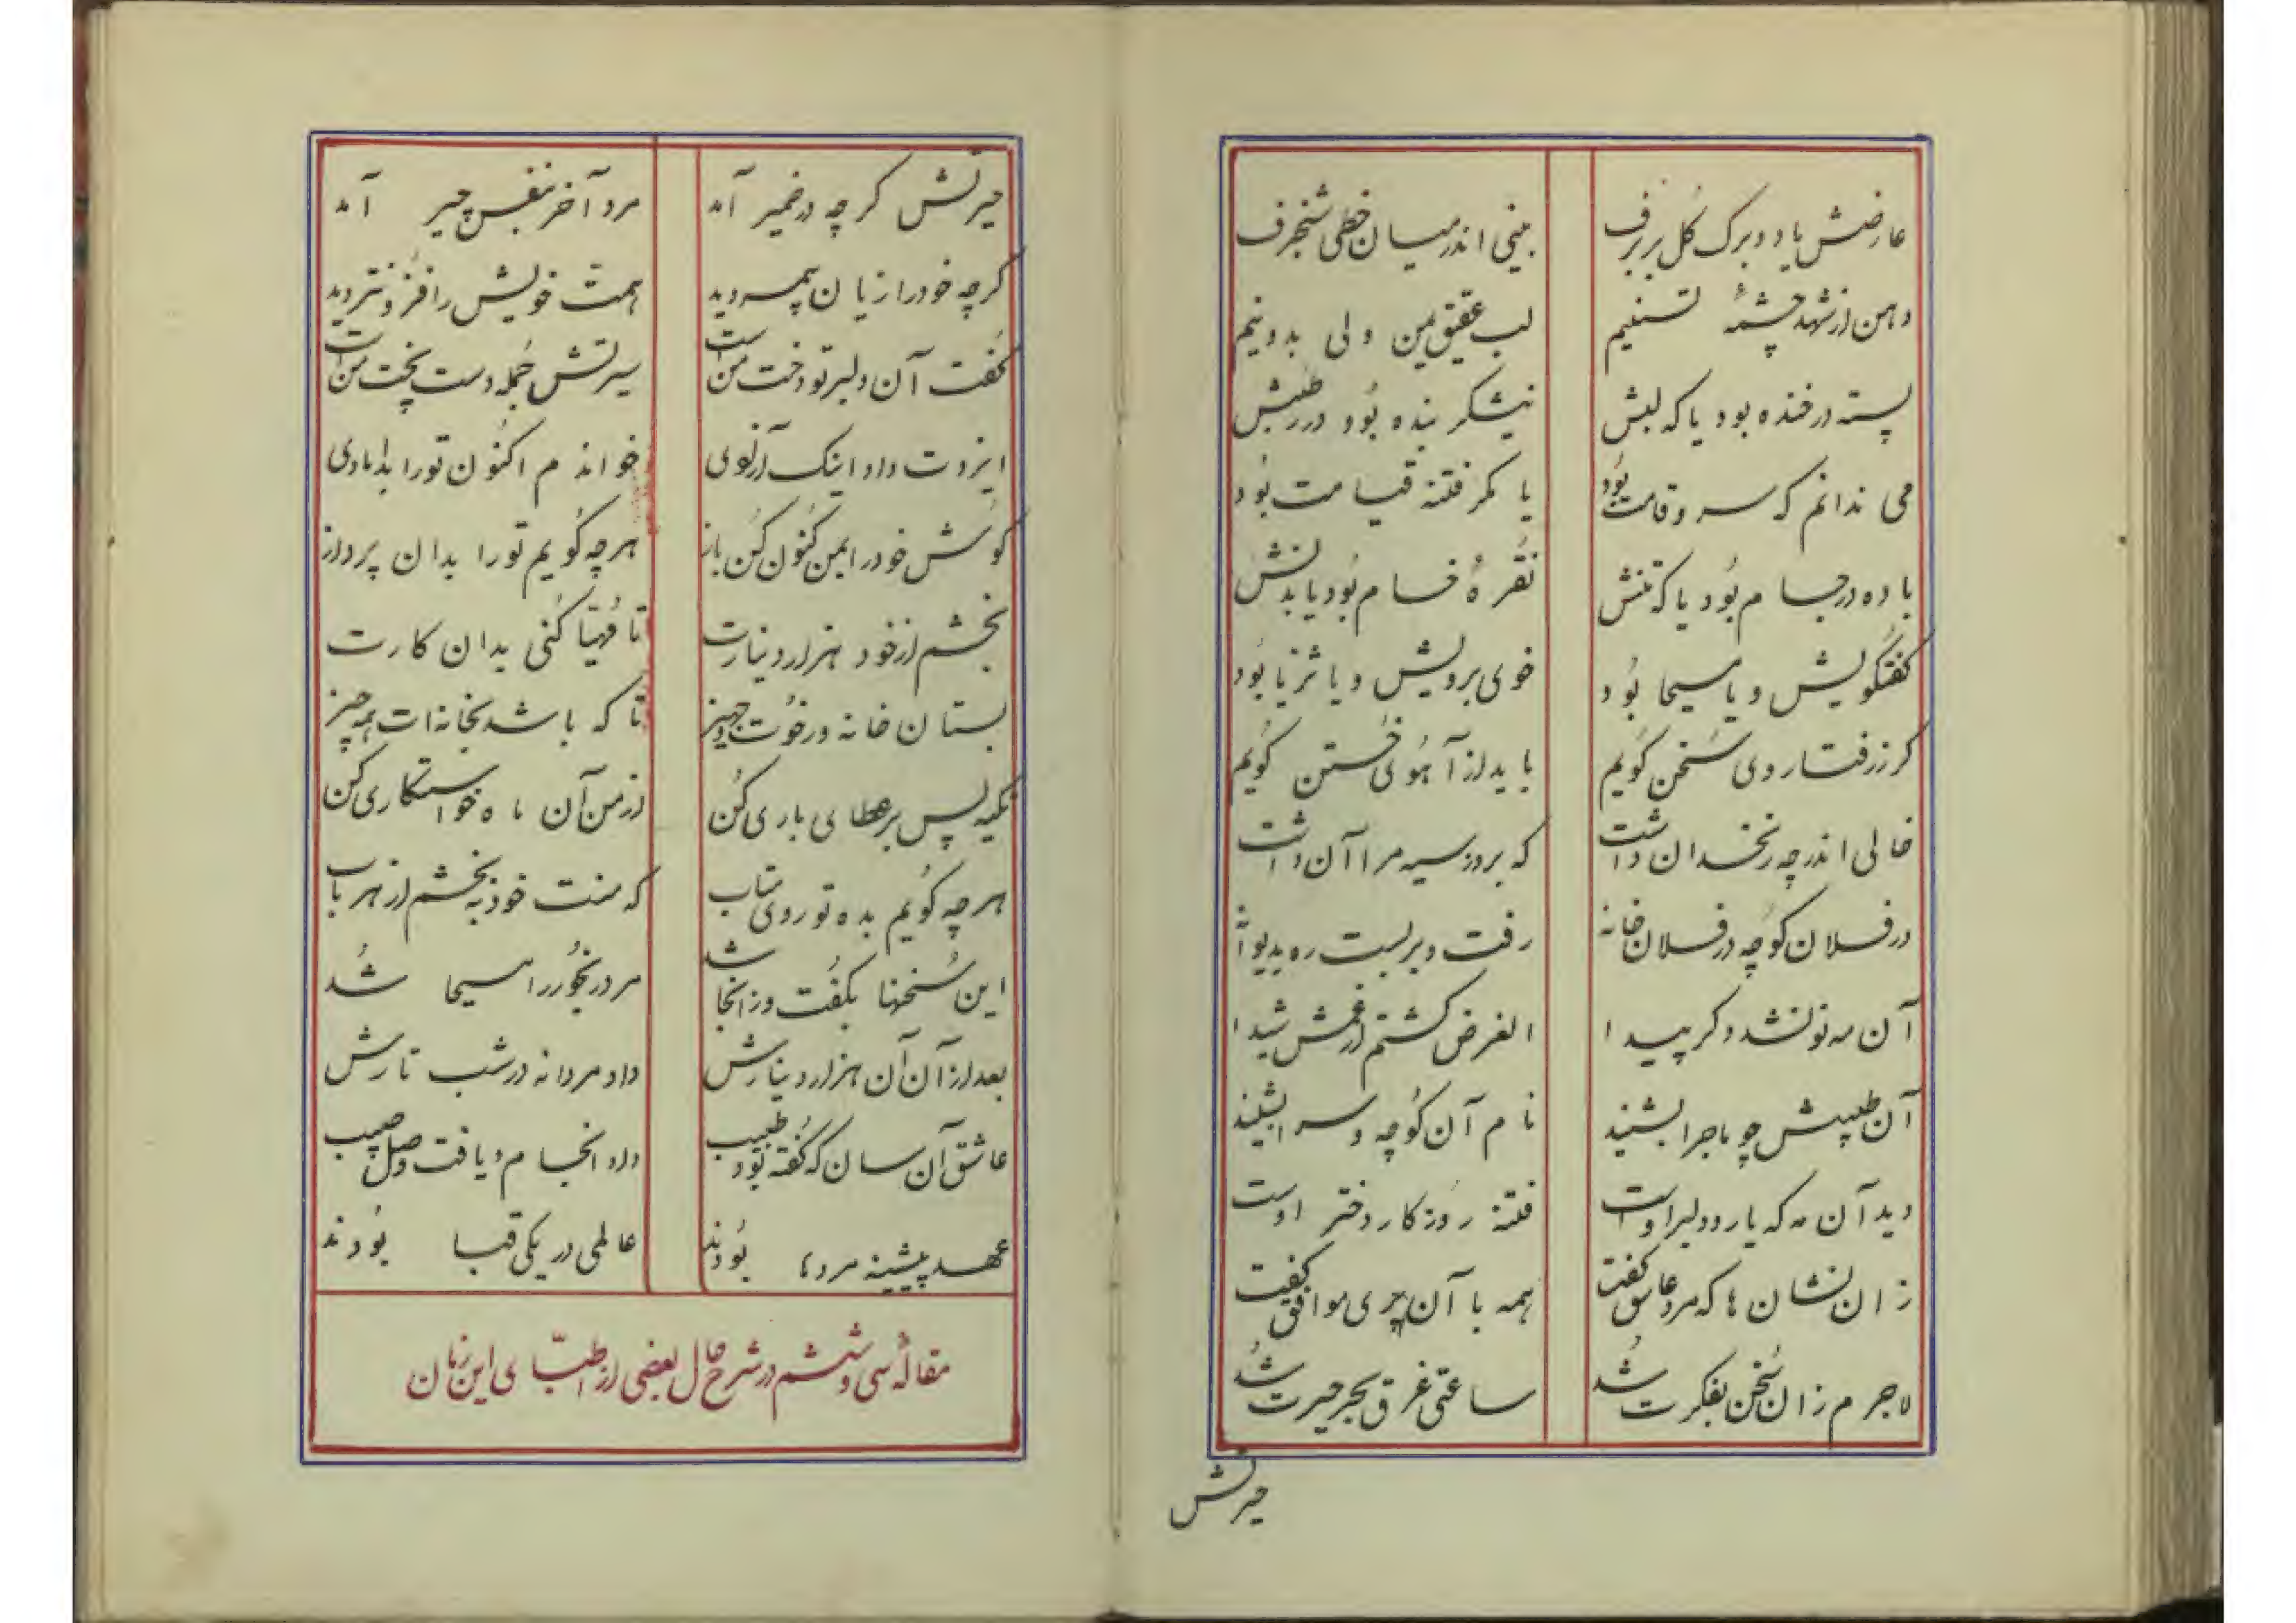 عارضش یا دو برک کل بر برف
بینی اندر میان خطی شنجرف
دهن از شهد چشمهٔ تسنیم
لب عقیق یمن ولی بدو نیم
پسته در خنده بود یا که لبش
نیشکر بنده بُود در رطبش
می ندانم که سرو قامت بُود
یا مکر فتنهٔ قیامت بُود
باده در جام بُود یا که تنش
نُقرهٔ خام بُود یا بدنش
کفتکویش و یا مسیحا بُود
خوی برویش و یا ثریا بُود
کر ز رفتار وی سُخن کُویم
باید از آهُوئی خُتن کُویم
خالی اندر چه زنخدان داشت
که بروز سیه مرا آن داشت
در فلان کُوچه در فلان خانه
رفت و بر بست ره بدیوانه
آن مه نو نشد دکر پیدا
الغرض کشتم از غمش شیدا
آن طبیبش چو ماجرا بشنید
نام آن کُوچه و سرا بشنید
دید آن مه که یار و دلبر اوست
فتنهٔ رُوزکار دختر اوست
زان نشان ها که مرد عاشق کفت
همه با آن پری موافق کفت
لاجرم زان سُخن بفکرت شُد
ساعتی غرق بحر حیرت شُد
حیرتش
حیرتش کرچه در ضمیر آمد
مرد آخر بنفس چیر آمد
کرچه خود را زیان بهمسر دید
همت خویش را فزُونتر دید
کُفت آن دلبر تو دخت من است
سیرتش جُمله دست پخت من است
ایزدت داد اینک آزادی
خواندم اکنُون تو را بدامادی
کُوش خود را بمن کُنون کُن باز
هرچه کُویم تو را بدان پرداز
بخشم از خود هزار دینارت
تا مُهیا کُنی بدان کارت
بستان خانه در خُوت و جهیز
تا که باشد بخانه ات همه چیز
تکیه پس بر عطای باری کُن
از من آن ماه خواستکاری کُن
هرچه کُویم بده تو روی متاب
که منت خود ببخشم از هر باب
این سُخنها بکُفت وز آنجا شد
مرد رنجُور را مسیحا شُد
بعد از آن آن هزار دینارش
داد مردانه در شب تارش
عاشق آن سان که کُفته بُود طبیب
داد انجام و یافت وصل حبیب
عهد پیشینه مردما بُودند
عالمی در یکی قبا بُودند
مقالهٔ سی و ششم در شرح حال بعضی از اطبّای این زمان